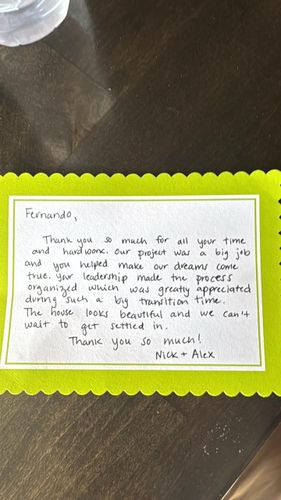 Fernando,
Thank you so much for all your time
and hard work. Our project was a big job
and you helped make our dreams come
true. Your leadership made the process
organized which was greatly appreciated
during such a big transition time.
The house looks beautiful and we can't
wait to get settled in.
Thank you so much!
Nick + Alex